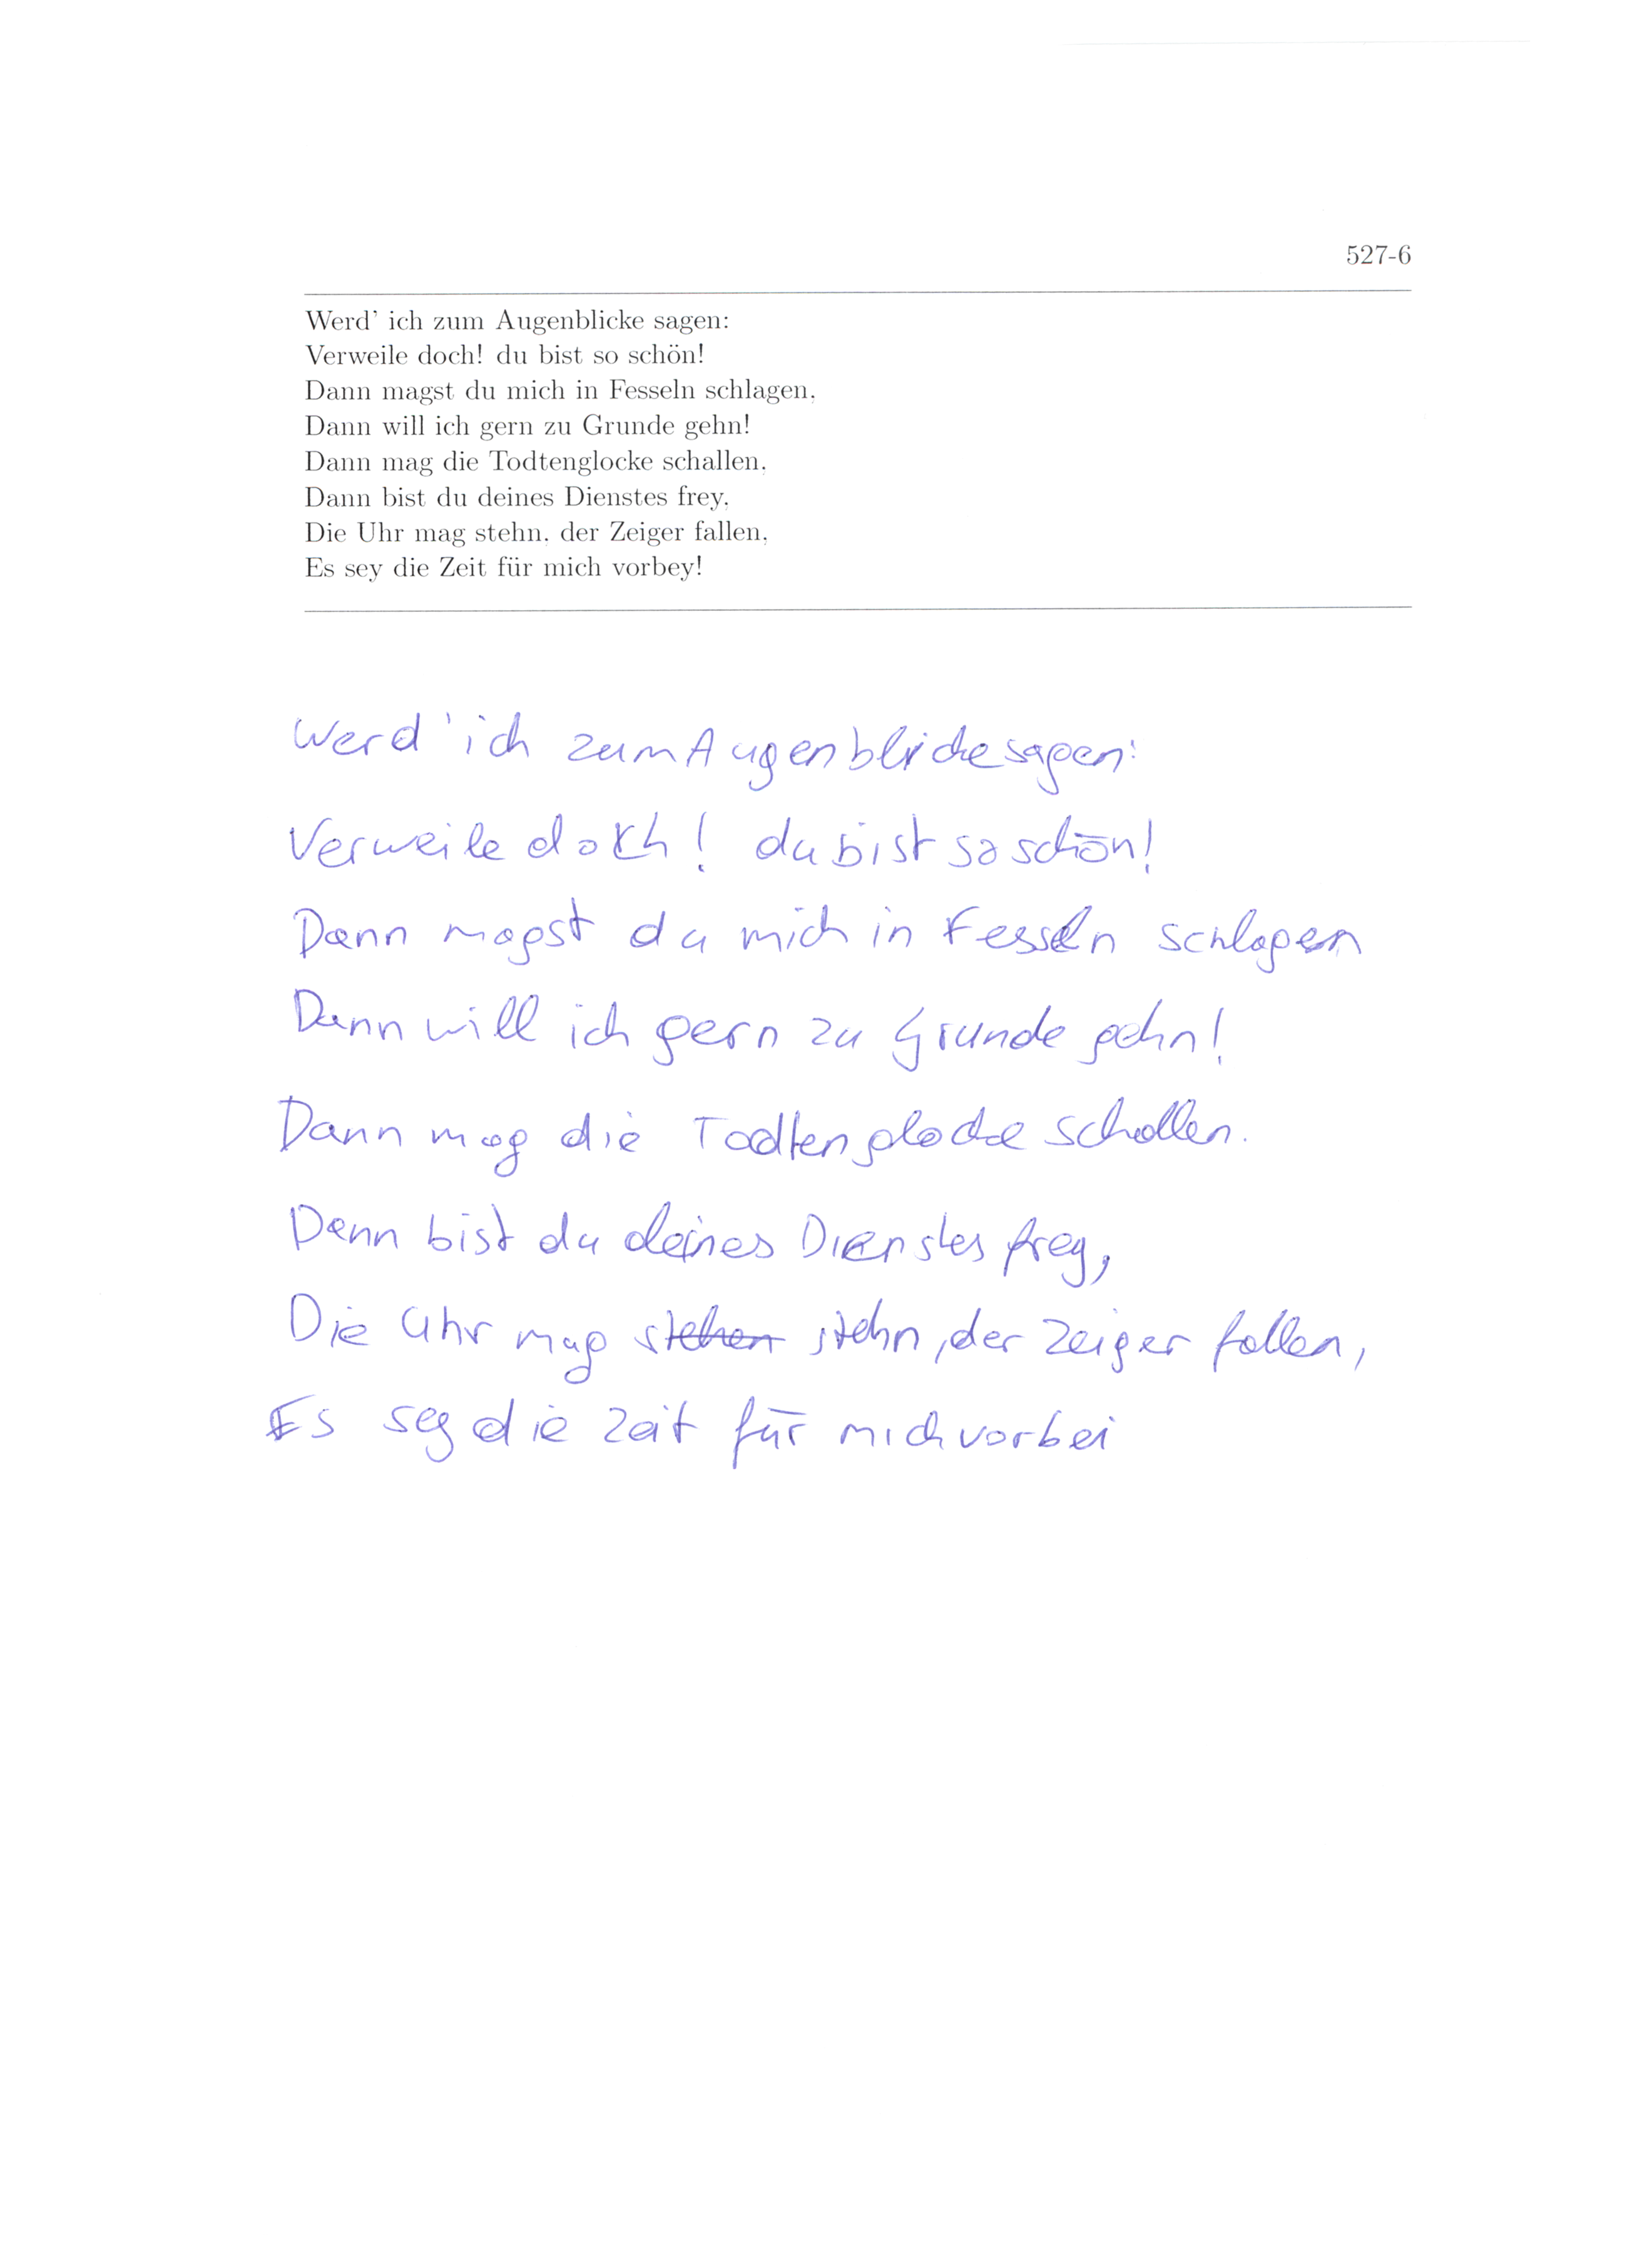 527-6
Werd' ich zum Augenblicke sagen:
Verweile doch! du bist so schön!
Dann magst du mich in Fesseln schlagen,
Dann will ich gern zu Grunde gehn!
Dann mag die Todtenglocke schallen,
Dann bist du deines Dienstes frey,
Die Uhr mag stehn, der Zeiger fallen,
Es sey die Zeit für mich vorbey!
Werd' ich zum Augenblicke sagen:
Verweile doch! du bist so schön!
Dann magst du mich in Fesseln schlagen
Dann will ich gern zu Grunde gehn!
Dann mag die Todtenglocke schallen.
Dann bist du deines Dienstes frey,
Die Uhr mag stehen stehn, der Zeiger fallen,
Es sey die Zeit für mich vorbei